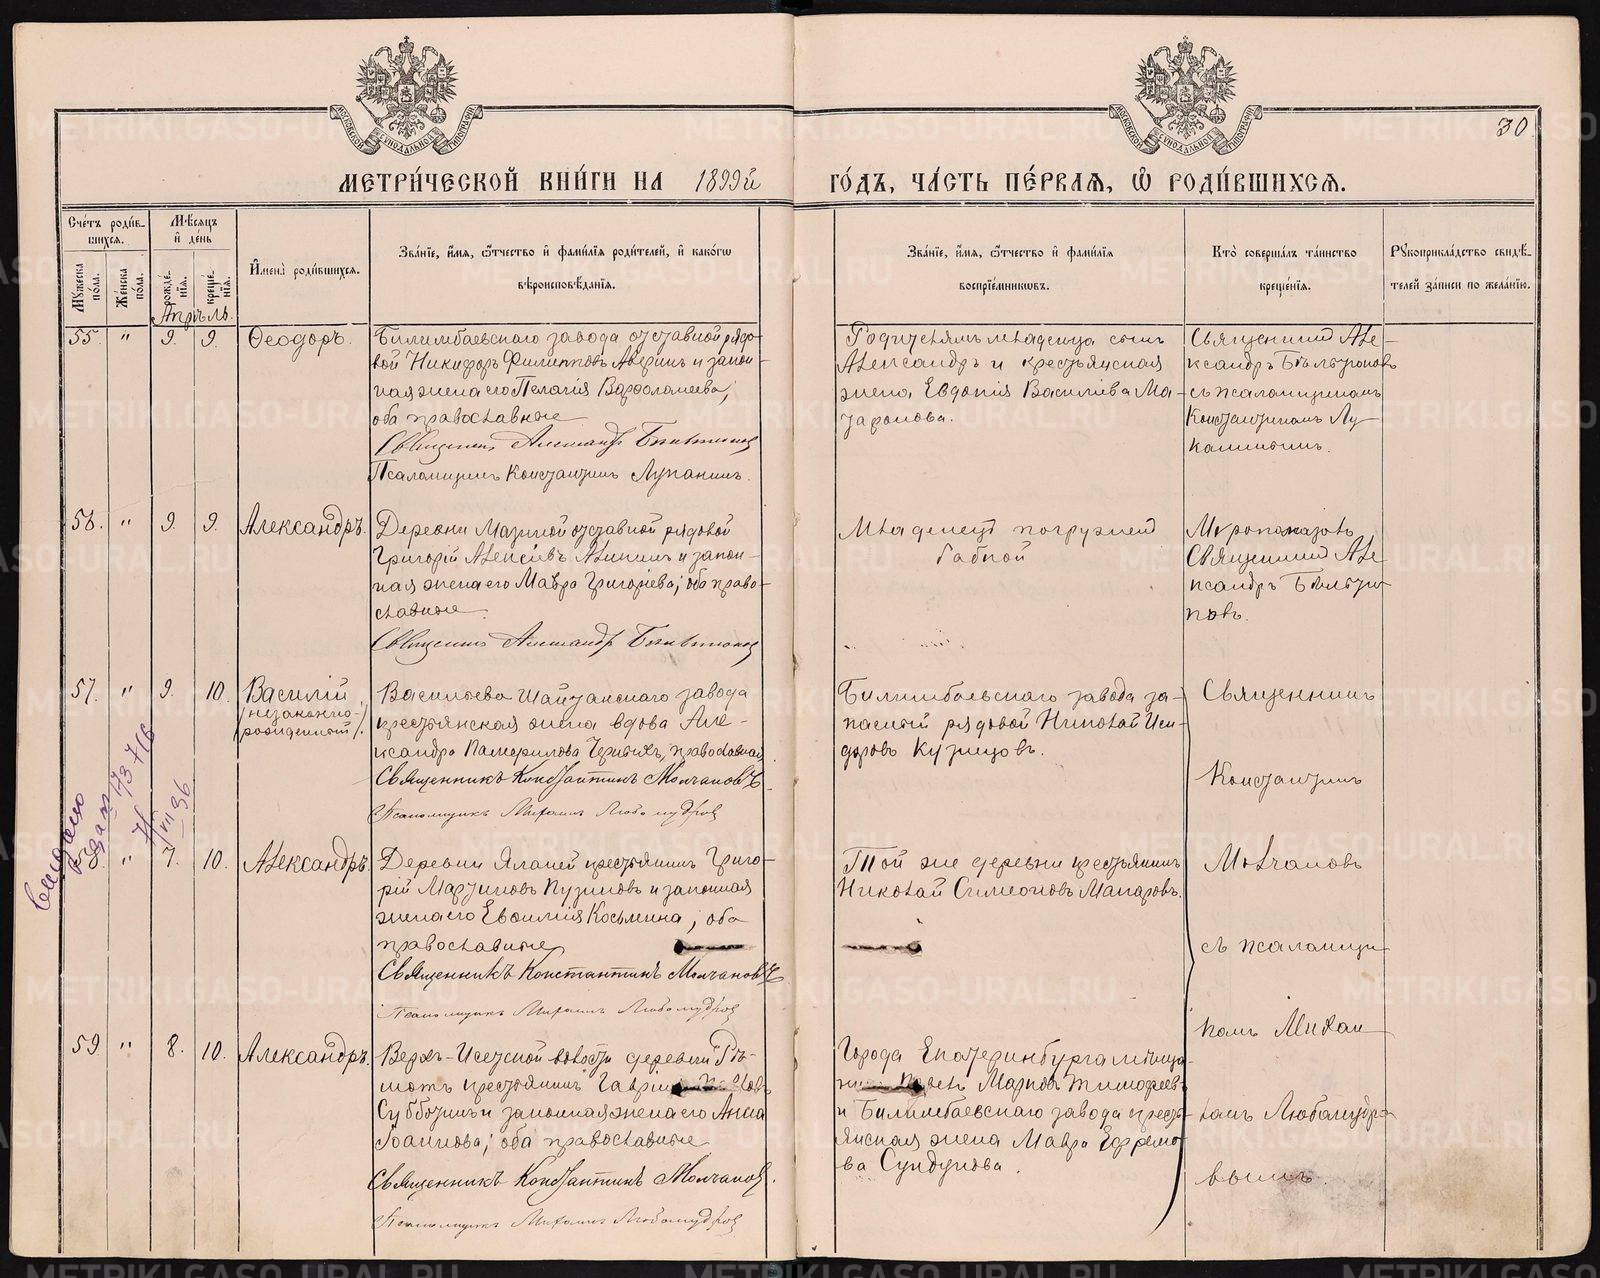 МОСКОВСКОЙ СѴНОДАЛЬНОЙ ТИПОГРАФІИ
МОСКОВСКОЙ СѴНОДАЛЬНОЙ ТИПОГРАФІИ
30
МЕТРИ́ЧЕСКОЙ КНИ́ГИ НА 1899й ГО́ДЪ, ЧА́СТЬ ПЕ́РВАЯ, Ѡ РОДИ́ВШИХСЯ.
Сче́тъ роди́в-
шихся.
Мѣ́сяцъ
и де́нь
Му́жеска по́ла.
Же́нска по́ла.
рожде́-
нія.
креще́-
нія.
Имена̀ роди́вшихся.
Зва́ніе, и́мя, о́тчество и фами́лія роди́телей, и како́гѡ
вѣроисповѣ́данія.
Зва́ніе, и́мя, о́тчество и фами́лія
воспріе́мникѡвъ.
Кто̀ соверша́лъ та́инство
креще́нія.
Рукоприкла́дство свидѣ́-
телей за́писи по жела́нію.
Апрѣль.
55. " 9. 9. Ѳеодоръ.
Билимбаевскаго завода отставной рядо-
вой Никифоръ Филипповъ Аверинъ и закон-
ная жена его Пелагія Варѳоломеева,
оба православные
Священникъ Александръ
Псаломщикъ Константинъ Луканинъ.
Родителямъ младенца сынъ
Александръ и крестьянская
жена Евдокія Василіева Ма-
Священникъ Але-
ксандръ
съ псаломщикомъ
Константиномъ Лу-
канинымъ.
56. " 9. 9. Александръ.
Деревни отставной рядовой
Григорій Алексіевъ и закон-
ная жена его Мавра Григоріева; оба право-
славные
Священникъ Александръ
Младенецъ погруженъ
бабкой
Мѵропомазалъ
Священникъ Але-
ксандръ
57. " 9. 10. Василій
(незаконно-
рожденный).
Васильево Шайтанскаго завода
крестьянская жена вдова Але-
ксандра Памфилова Черныхъ, православная
Священникъ Константинъ Молчановъ
Псаломщикъ Михаилъ Любомудровъ
Билимбаевскаго завода за-
пасный рядовой Николай Иси-
доровъ Кузнецовъ.
Священникъ
Константинъ
Молчановъ
съ псаломщи-
комъ Михаи-
ломъ Любомудро-
вымъ.
58. " 7. 10. Александръ.
Деревни крестьянинъ Григо-
рій Мартиновъ и законная
жена его Евѳимія Косьмина; оба
православные
Священникъ Константинъ Молчановъ
Псаломщикъ Михаилъ Любомудровъ
Той же деревни крестьянинъ
Николай Симеоновъ Макаровъ.
59. " 8. 10. Александръ.
Верхъ-Исетской волости деревни Рѣ-
шотъ крестьянинъ
Субботинъ и законная жена его Анна
Іоаннова; оба православные
Священникъ Константинъ Молчановъ.
Псаломщикъ Михаилъ Любомудровъ
Города Екатеринбурга мѣща-
Марковъ Тимофеевъ
и Билимбаевскаго завода кресть-
янская жена Мавра Ефремо-
ва Сундукова.